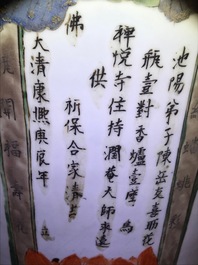 池陽弟子陳岳友喜助花
瓶壹對香爐壹座為
禪悅寺住持潤菴大師永遠
供
佛
祈保合家清吉
大清康熙庚辰年